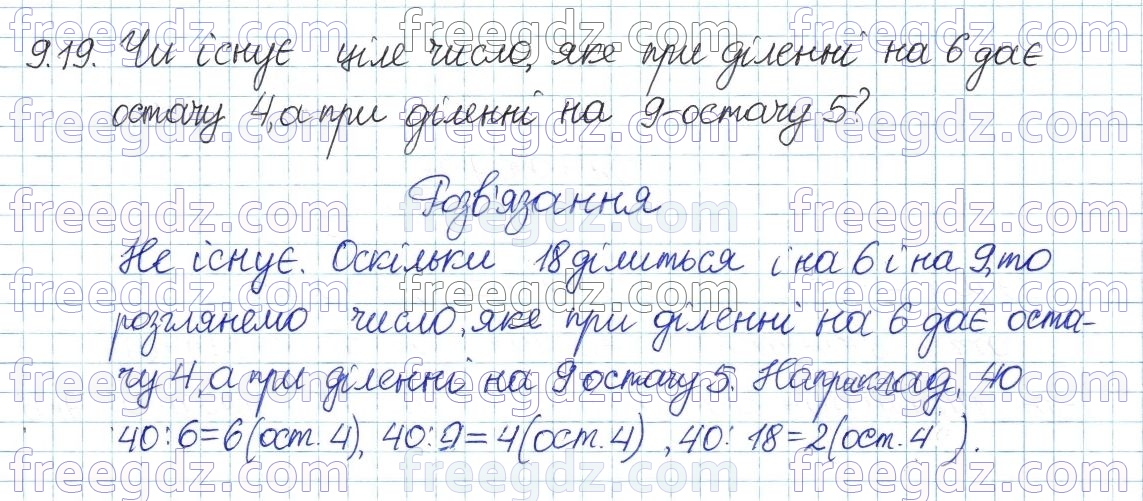 9.19. Чи існує ціле число, яке при діленні на 6 дає
остачу 4, а при діленні на 9-остачу 5?
Розв'язання
Не існує. Оскільки 18 ділиться і на 6 і на 9, то
розглянемо число, яке при діленні на 6 дає оста-
чу 4, а при діленні на 9 остачу 5. Наприклад, 40
40:6=6(ост. 4), 40:9=4(ост. 4), 40:18=2(ост. 4 ).
freegdz.com